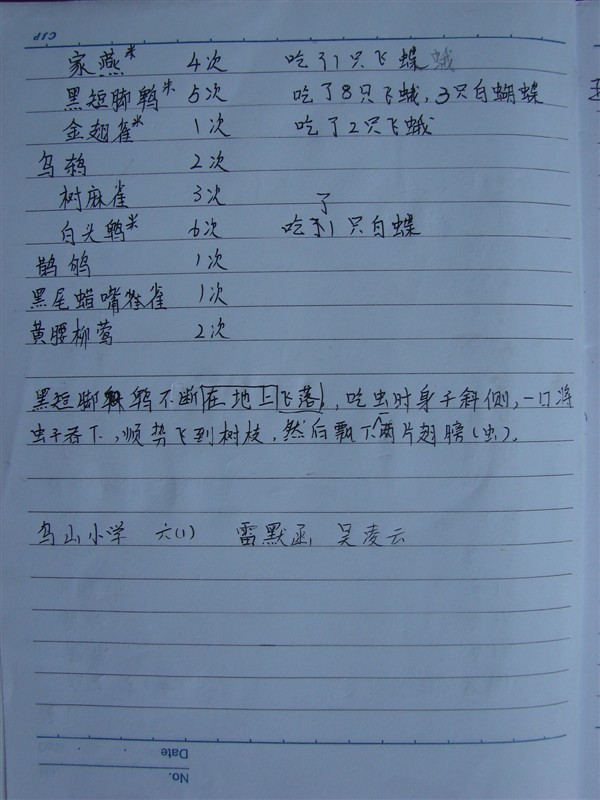 家燕* 4次 吃了1只飞蝶蛾
黑短脚鹎* 5次 吃了8只飞蛾,3只白蝴蝶
金翅雀* 1次 吃了2只飞蛾
乌鸫 2次
树麻雀 3次 了
白头鹎* 6次 吃1只白蝶
鹊鸲 1次
黑尾蜡嘴雀 1次
黄腰柳莺 2次
黑短脚鹎不断在地上飞落,吃虫时身子斜侧,一口将
虫子吞下,顺势飞到树枝,然后飘下两片翅膀(虫)。
乌山小学 六(1) 雷默涵 吴凌云
Date
No.